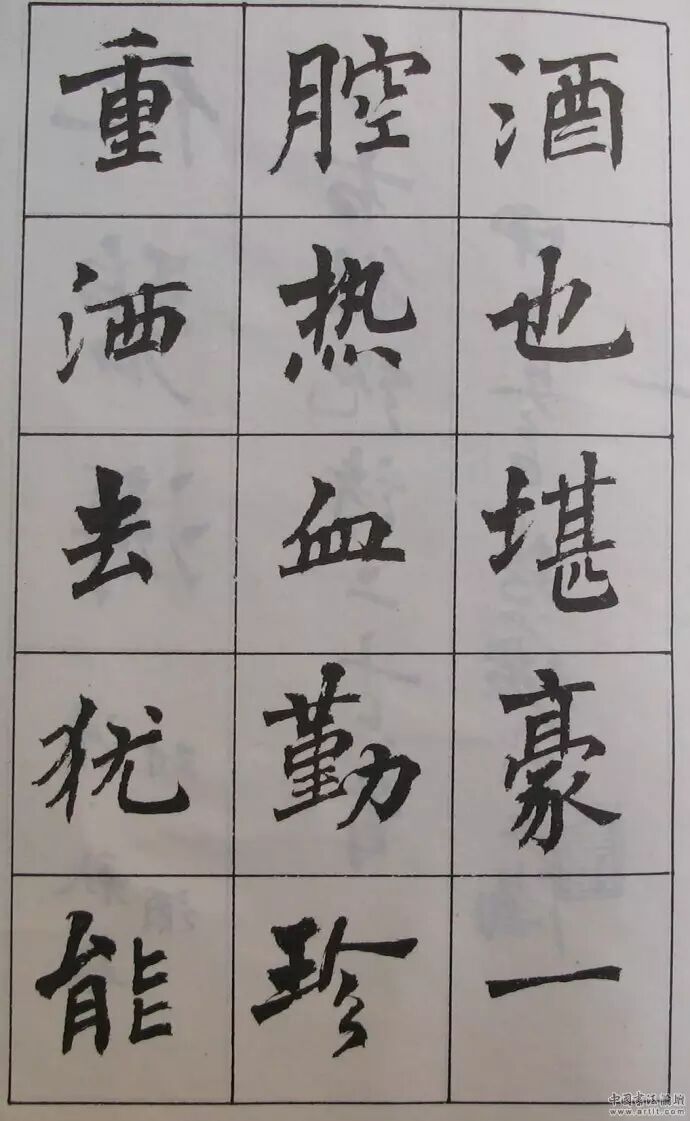 酒也堪豪一
腔热血勤珍
重洒去犹能
中国书法论坛
www.artit.com